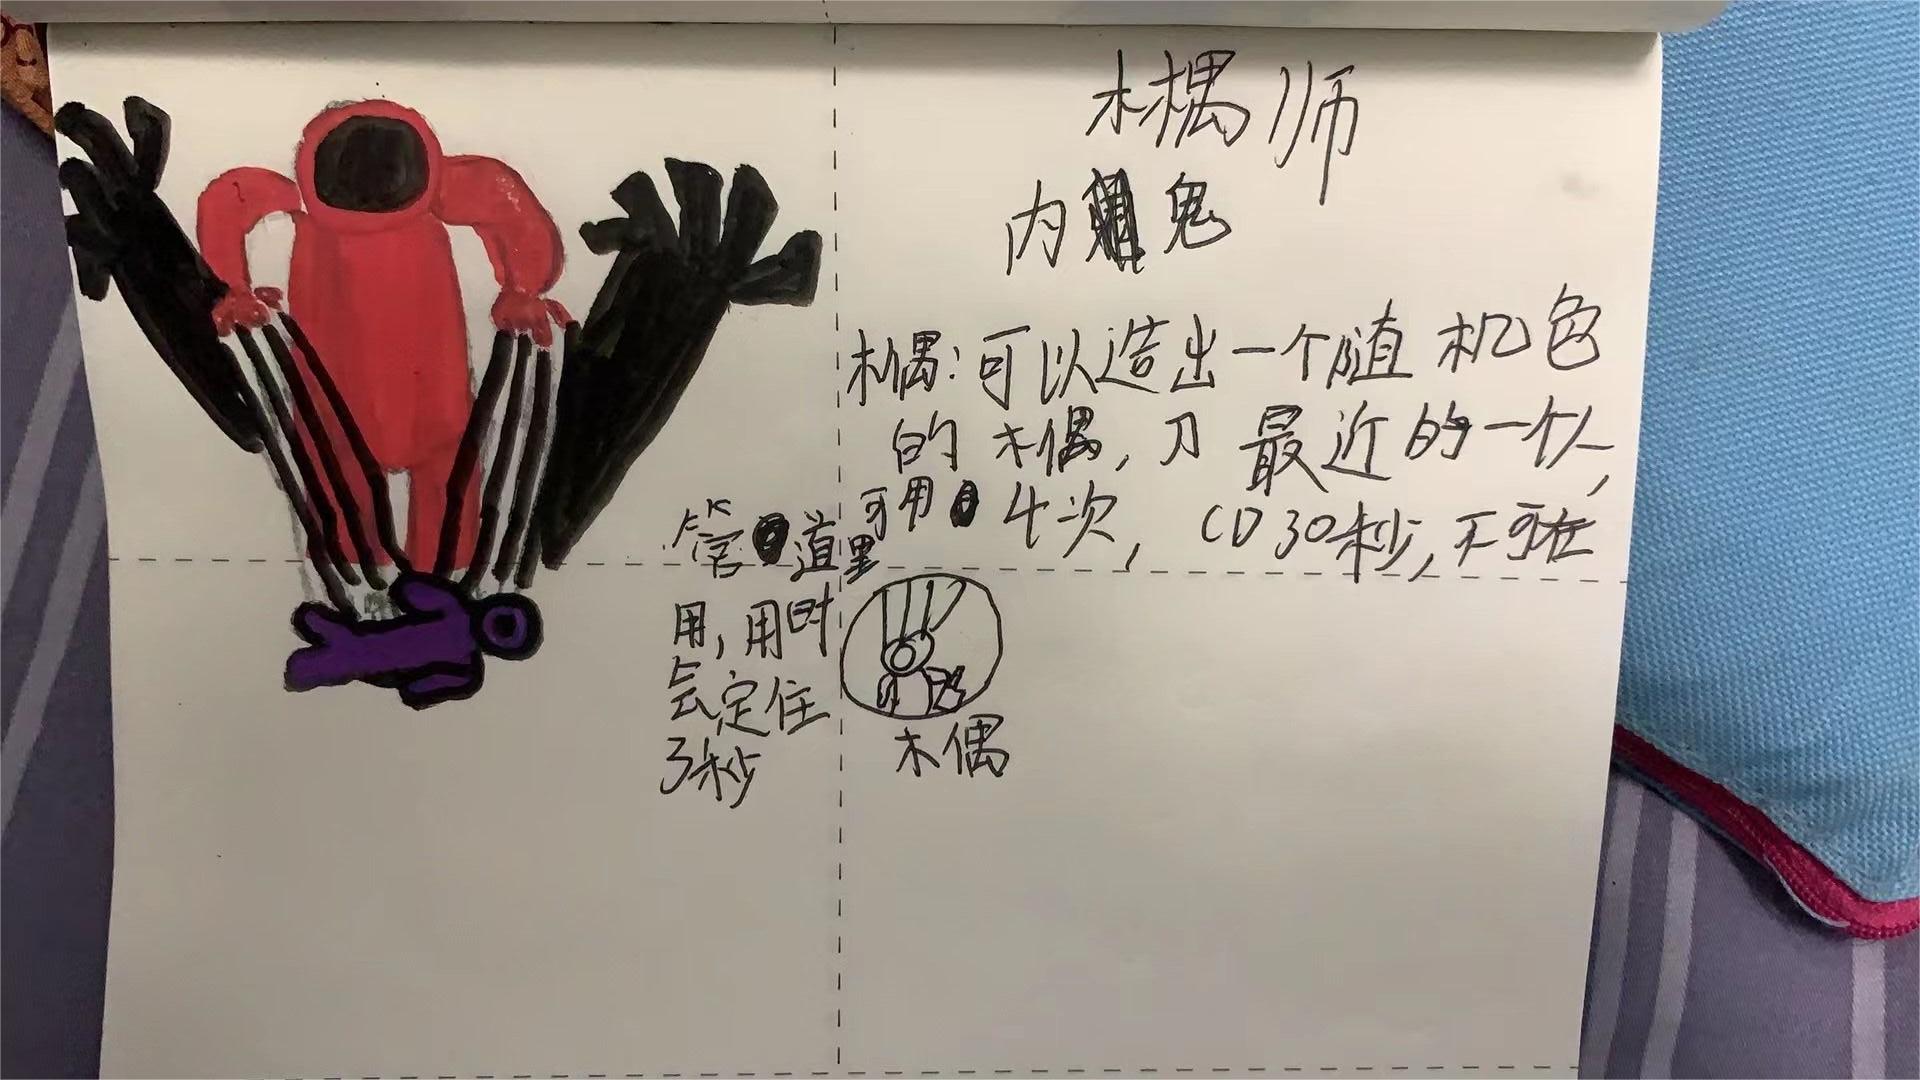 木偶师
内鬼
木偶：可以造出一个随机色
的木偶，刀最近的一个人，
可用4次，CD30秒，不可在
管道里
用，用时
会定住
3秒
木偶